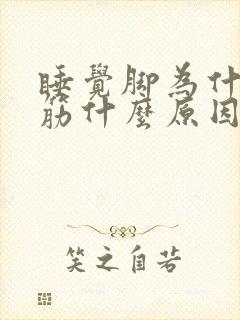 睡覺腳為什
筋什麼原因
笑之自若